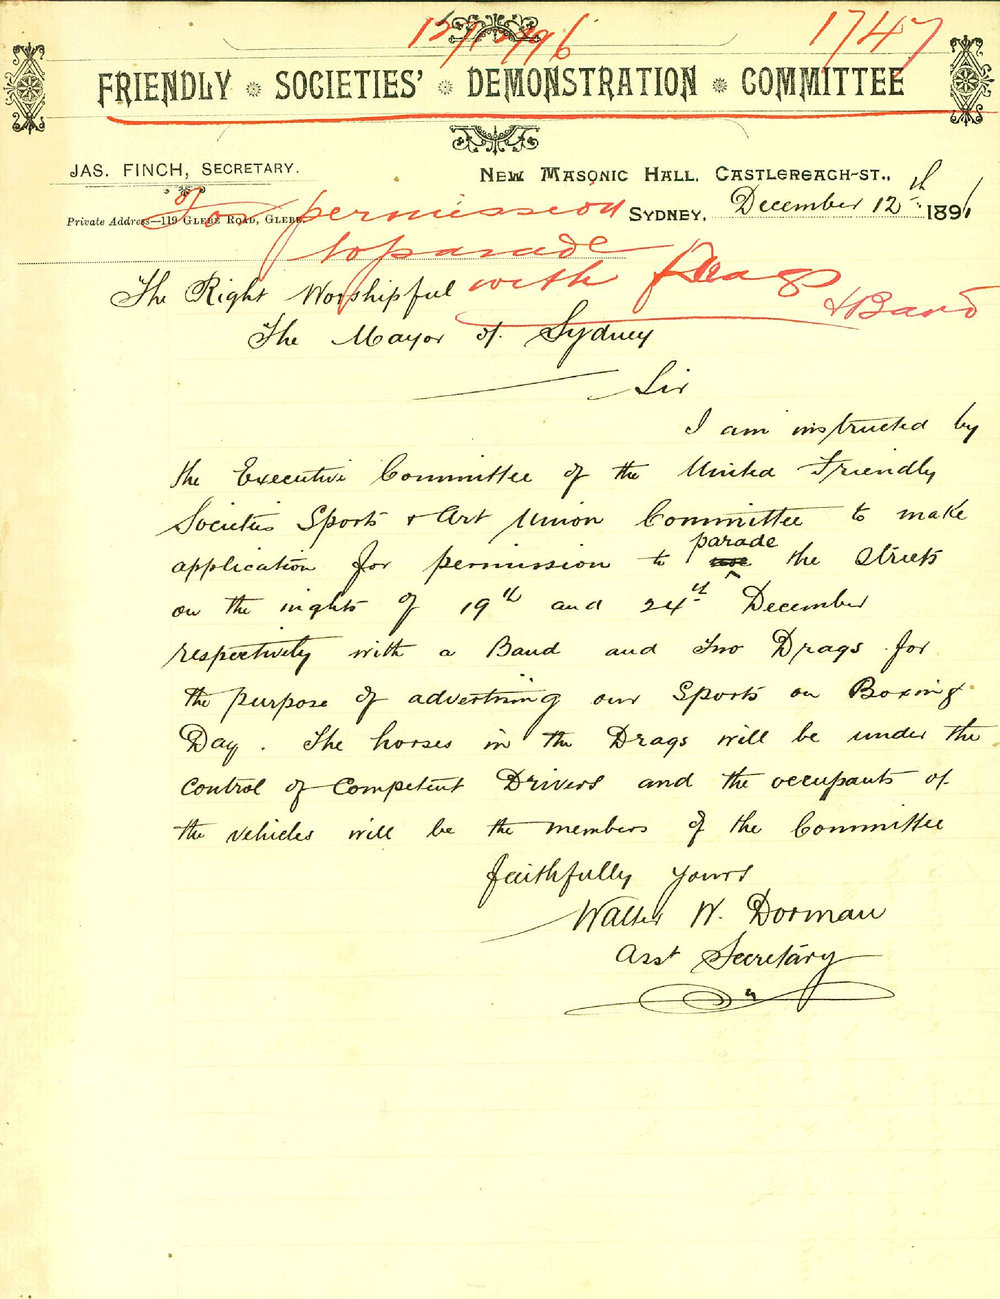 12/12/96 1747
FRIENDLY SOCIETIES' DEMONSTRATION COMMITTEE
JAS. FINCH, SECRETARY.
NEW MASONIC HALL, CASTLEREAGH-ST.,
Private Address—119 GLEBE ROAD, GLEBE.
SYDNEY, December 12th 1896
For permission
to parade
with Drags
& Band
The Right Worshipful
The Mayor of Sydney
Sir
I am instructed by
the Executive Committee of the United Friendly
Societies Sports & Art Union Committee to make
parade
application for permission to the Streets
on the nights of 19th and 24th December
respectively with a Band and Two Drags for
the purpose of advertising our Sports on Boxing
Day. The horses in the Drags will be under the
control of Competent Drivers and the occupants of
the vehicles will be the members of the Committee
faithfully yours
Walter W. Dorman
Asst Secretary